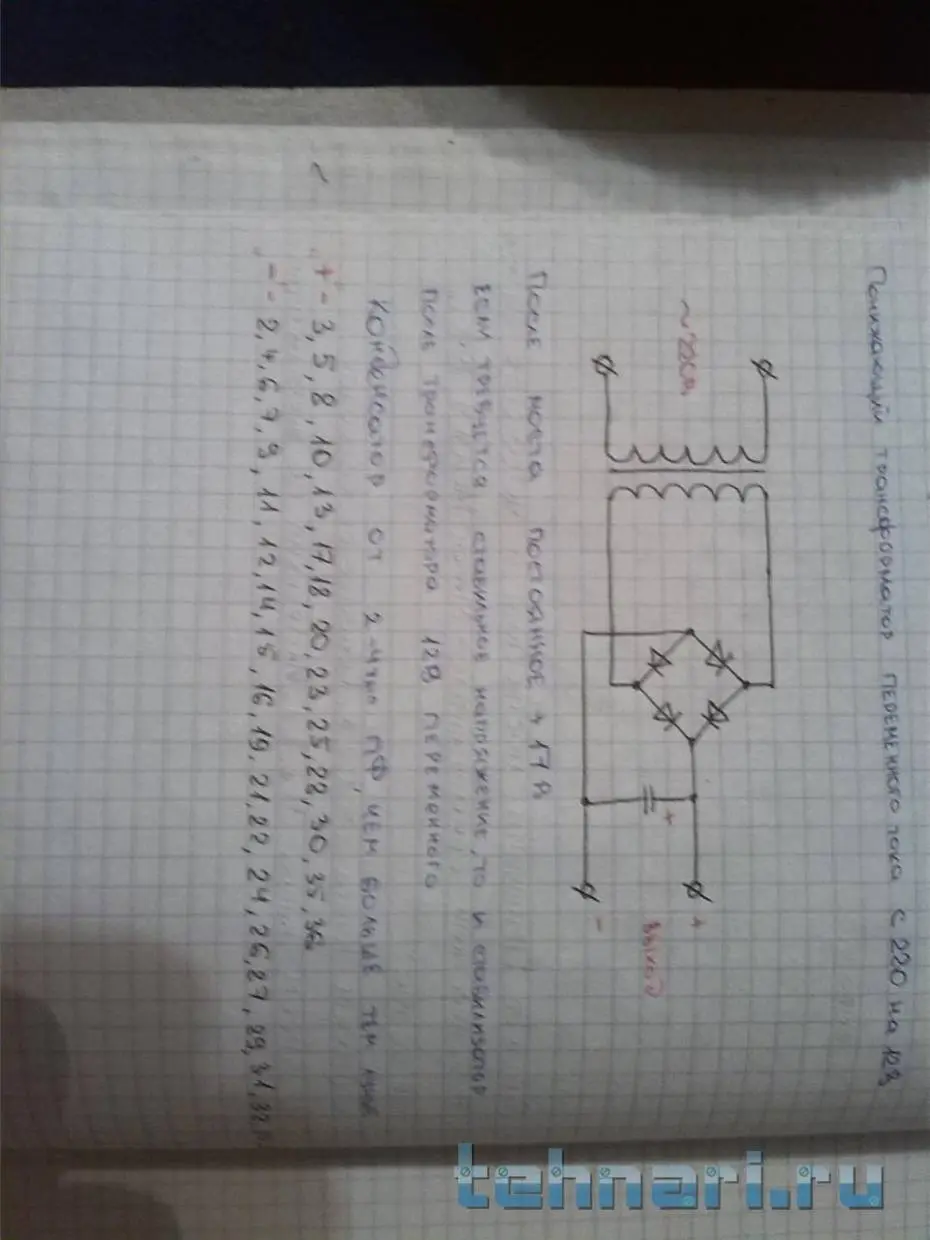 Понижающий трансформатор переменного тока с 220 на 12В
+
выход
-
+
После моста постоянное → 17 В
Если требуется стабильное напряжение, то и стабилизатор
после трансформатора 12В переменного
Конденсатор от 2-4тыс пФ, чем больше тем
"+" - 3, 5, 8, 10, 13, 17, 18, 20, 23, 25, 28, 30, 35, 36
"-" - 2, 4, 6, 7, 9, 11, 12, 14, 15, 16, 19, 21, 22, 24, 26, 27, 29, 31, 32,
tehnari.ru